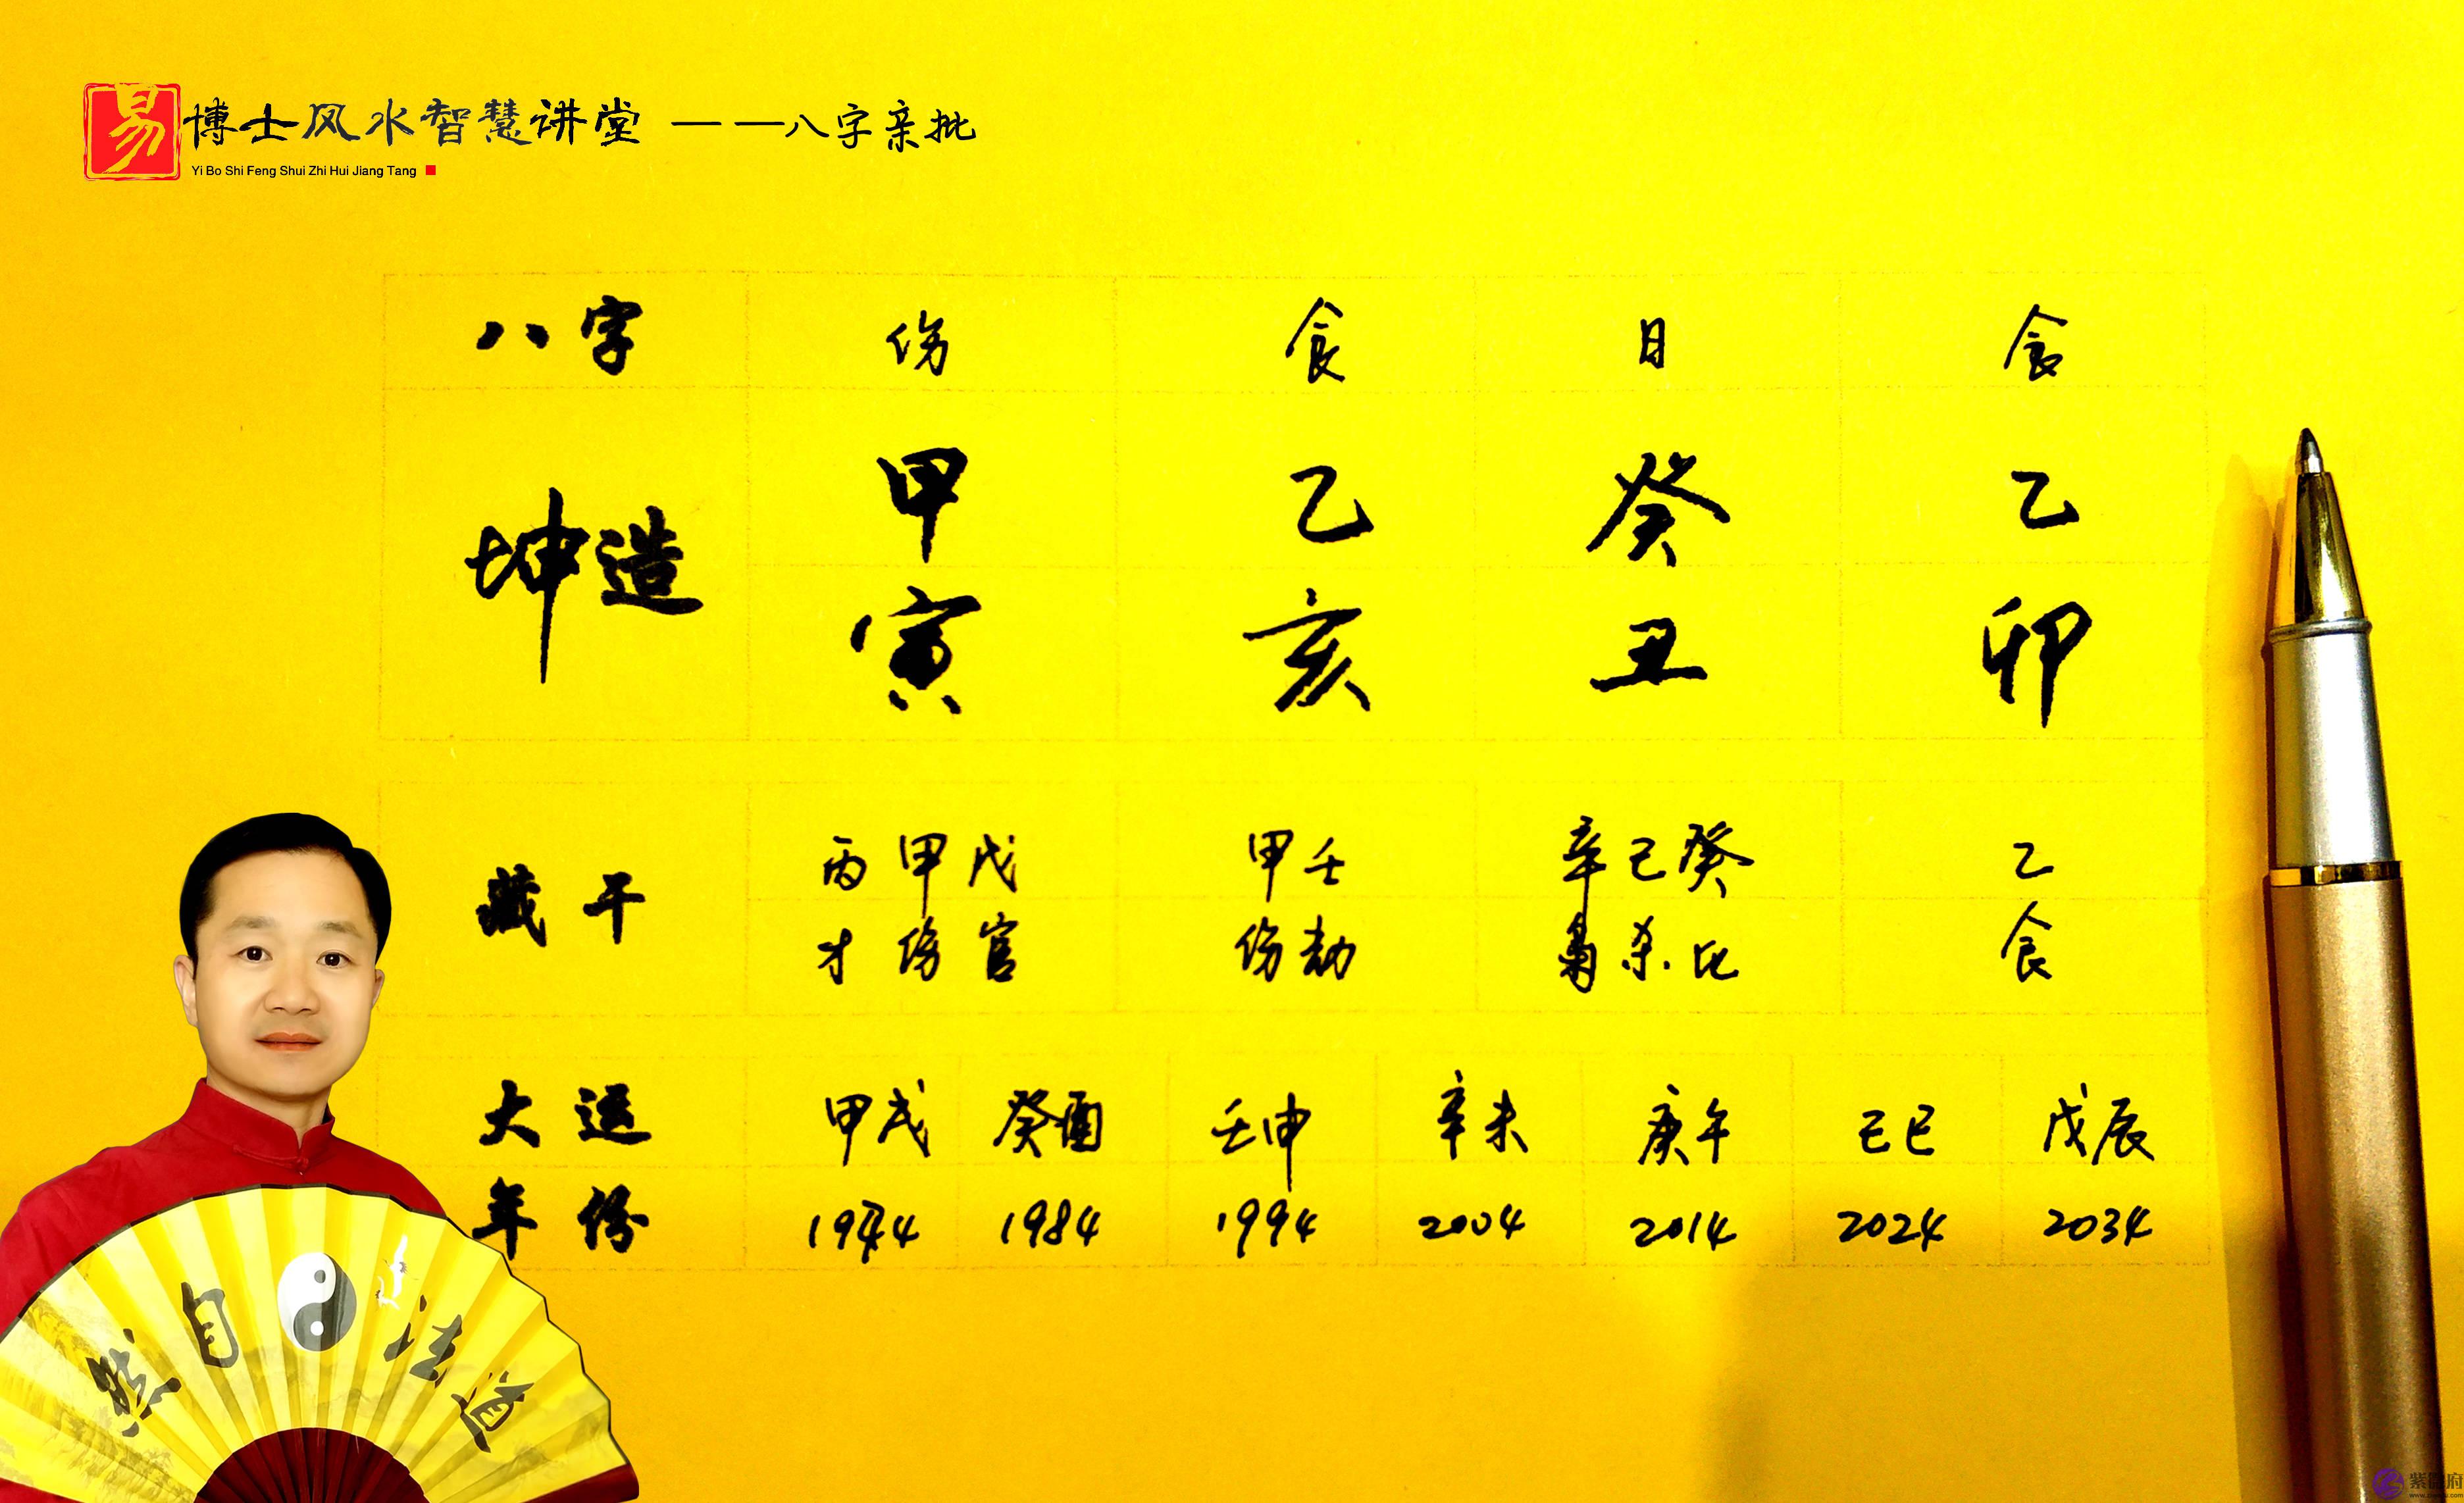 易博士风水智慧讲堂 ——八字亲批
Yi Bo Shi Feng Shui Zhi Hui Jiang Tang
八字 伤 食 日 食
坤造 甲 乙 癸 乙
寅 亥 丑 卯
藏干 丙甲戊 甲壬 辛己癸 乙
才伤官 伤劫 枭杀比 食
大运 甲戌 癸酉 壬申 辛未 庚午 己巳 戊辰
年份 1974 1984 1994 2004 2014 2024 2034
然自法道